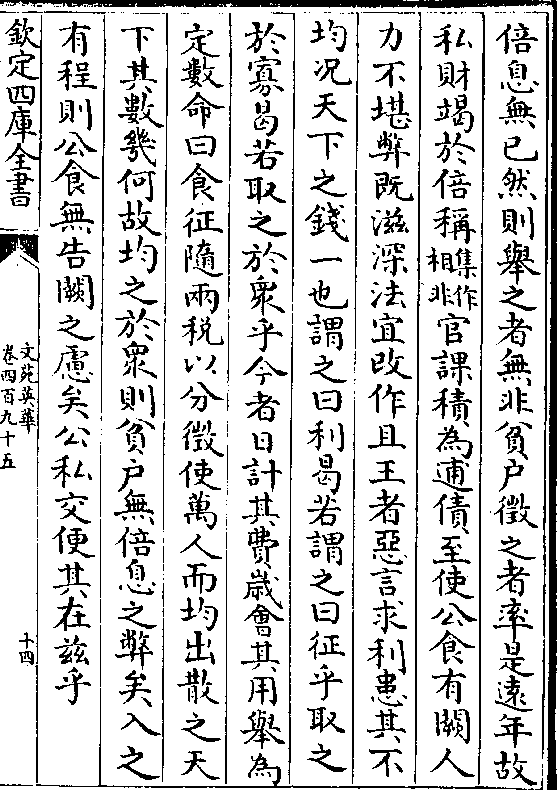 倍息無已然則舉之者無非貧户徵之者率是遠年故
私財竭於倍稱集作相非官課積為逋債至使公食有闕人
力不堪弊既滋深法宜改作且王者惡言求利患其不
均况天下之錢一也謂之曰利曷若謂之曰征乎取之
於寡曷若取之於衆乎今者日計其費歲會其用舉為
定數命曰食征隨兩税以分徵使萬人而均出散之天
下其數幾何故均之於衆則貧户無倍息之弊矣入之
有程則公食無告闕之慮矣公私交便其在兹乎
欽定四庫全書
文苑英華
卷四百九十五
十四